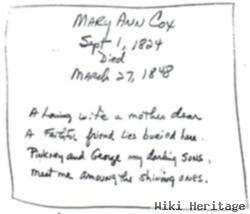 MARY ANN COX
Sept 1, 1824
Died
MARCH 27, 1848
A loving wife a mother dear
A Faithful friend lies buried here.
Pinkney and George my darling sons,
meet me amoung the shining ones.
Wiki Heritage